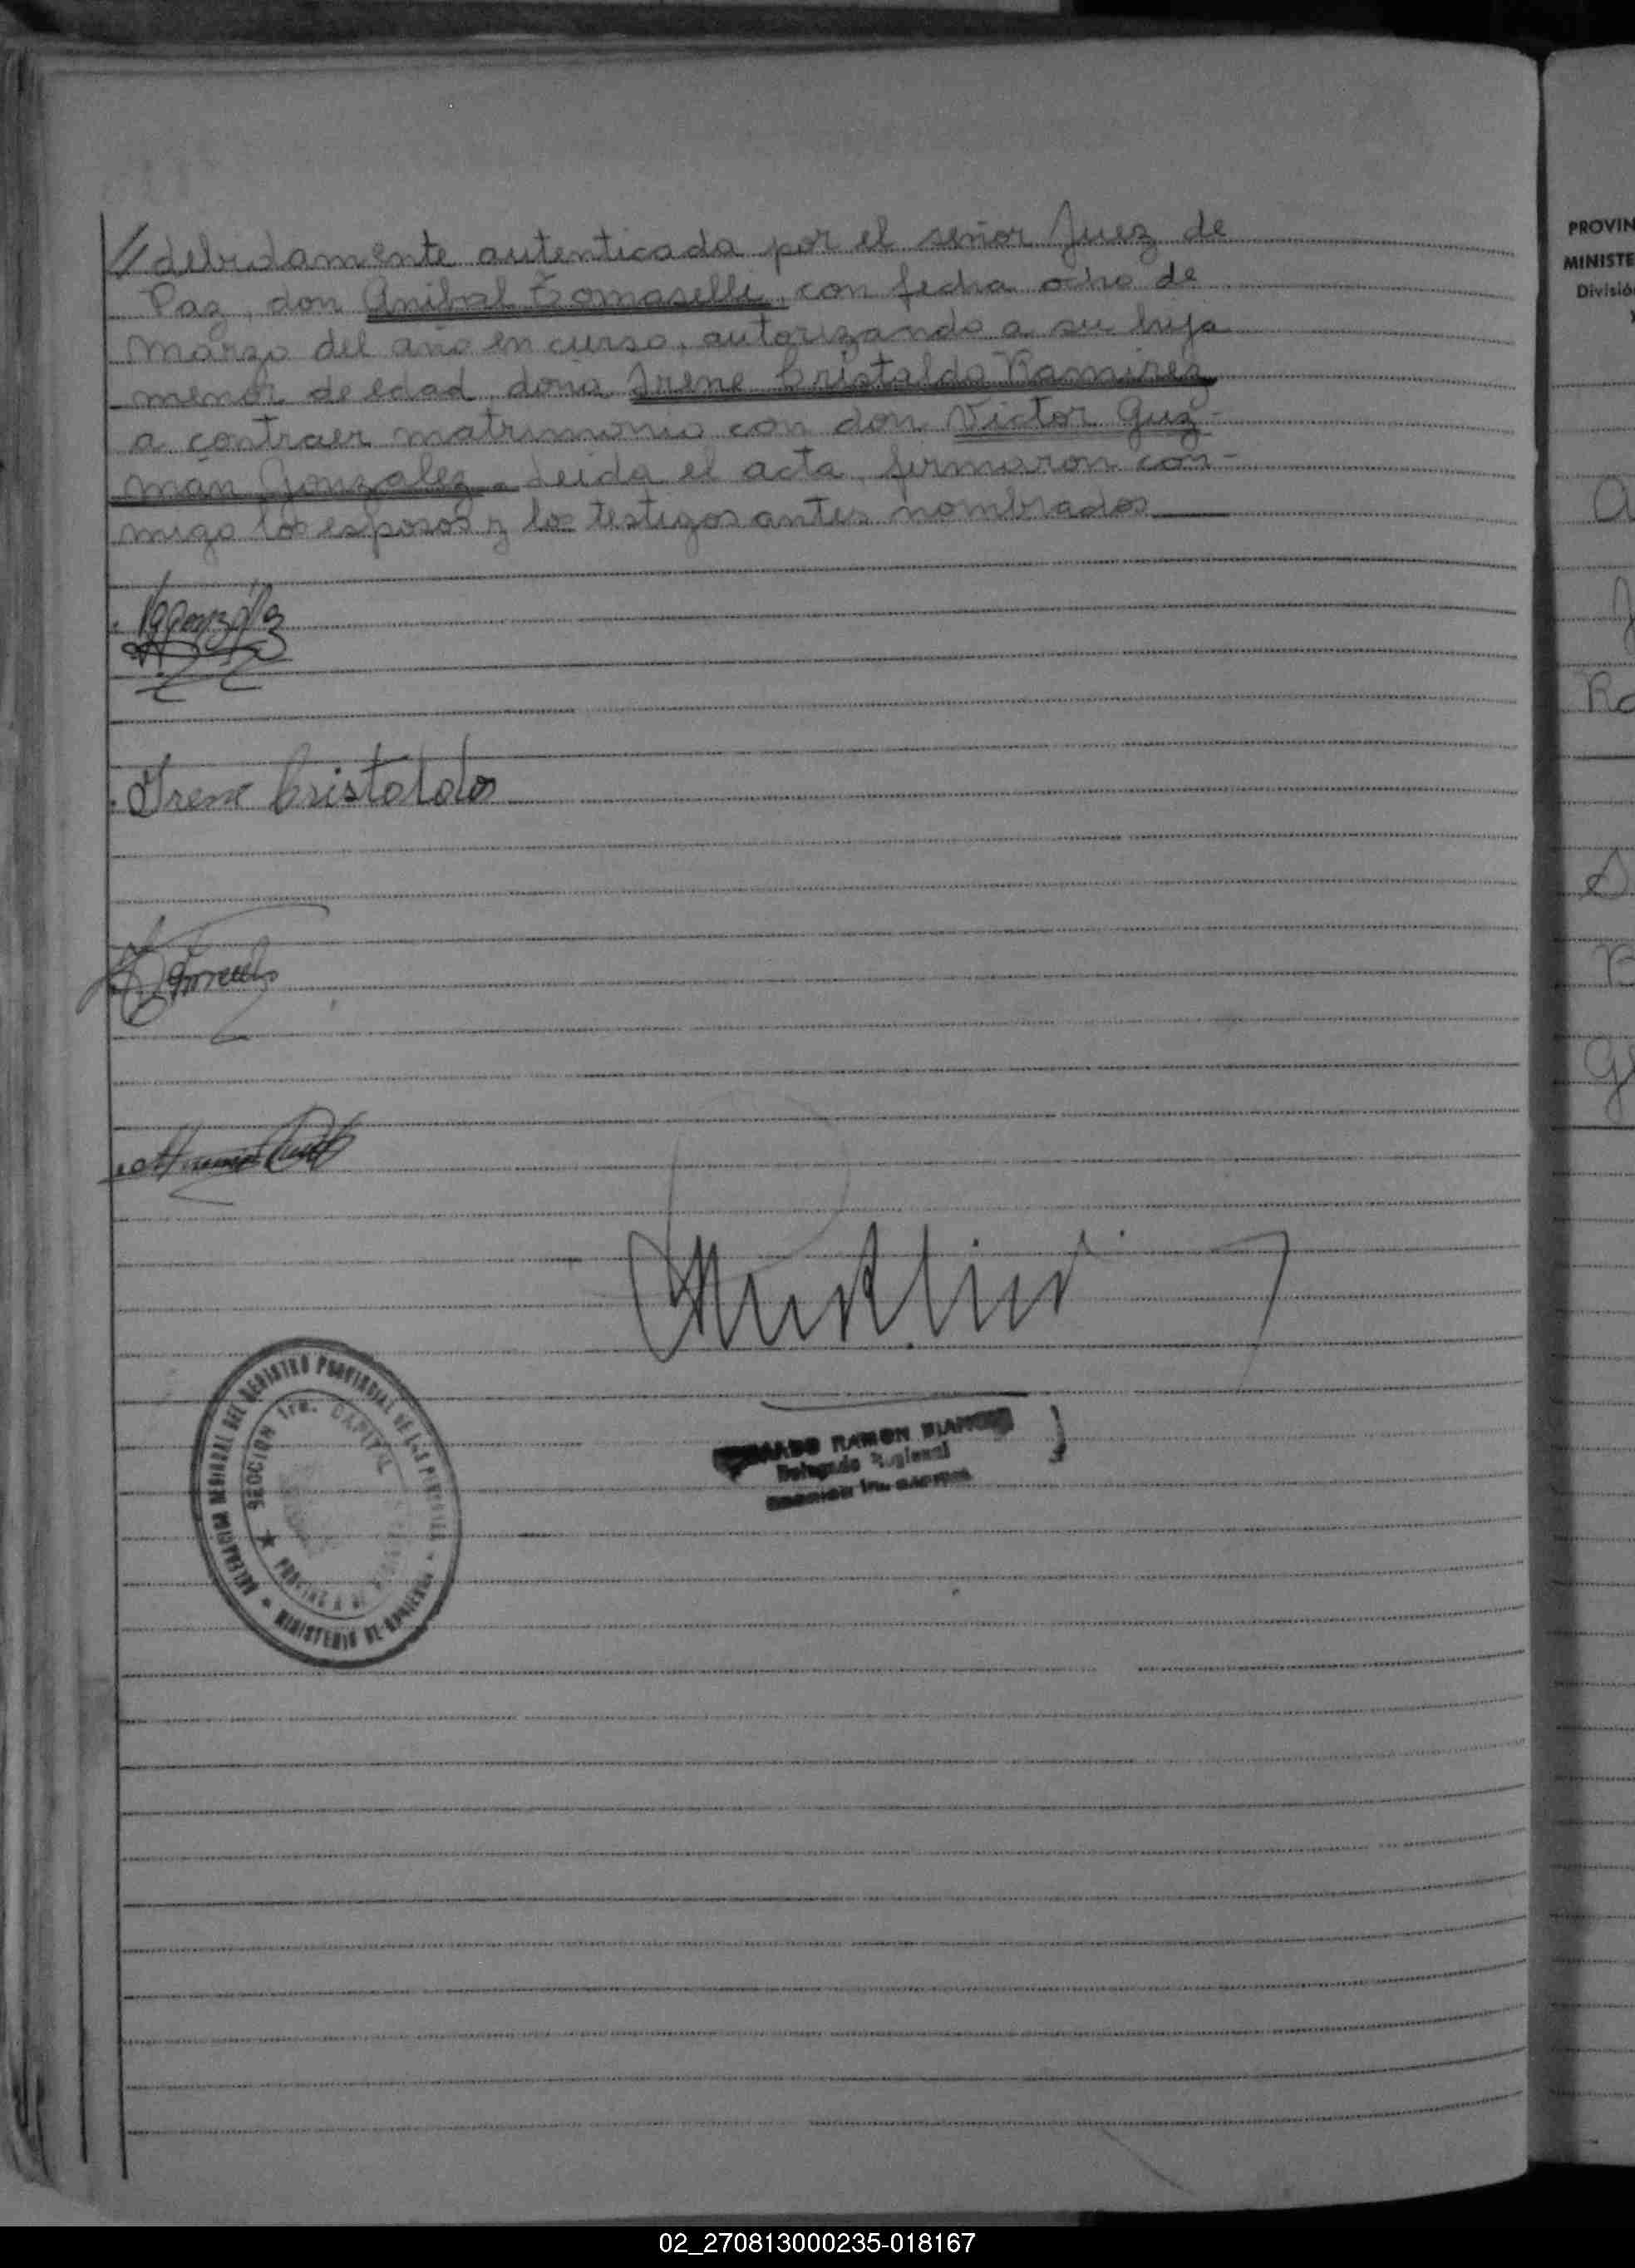 // debidamente autenticada por el señor Juez de
Paz, don Anibal Tomaselli, con fecha ocho de
marzo del año en curso, autorizando a su hija
menor de edad, doña Irene Cristaldo Ramirez
a contraer matrimonio con don Victor Guz-
mán Gonzalez. Leida el acta, firmaron con-
migo los esposos y los testigos antes nombrados
Irene Cristaldo
RAMON
Delegado Regional
DEL REGISTRO PROVINCIAL DE LAS PERSONAS
SECCION 1ra. CAPITAL
MINISTERIO DE GOBIERNO
PROVIN
MINISTE
Divisió
02_270813000235-018167